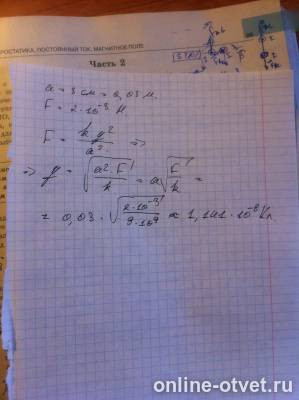 РОСТАТИКА, ПОСТОЯННЫЙ ТОК, МАГНИТНОЕ ПОЛЕ
Часть 2
a = 3 см = 0,03 м.
F = 2·10⁻³ Н
F = kq²/a² ⇒
⇒ q = √(a²·F/k) = a√(F/k) =
= 0,03 · √(2·10⁻³/9·10⁹) ≈ 1,141·10⁻⁸ Кл
online-otvet.ru